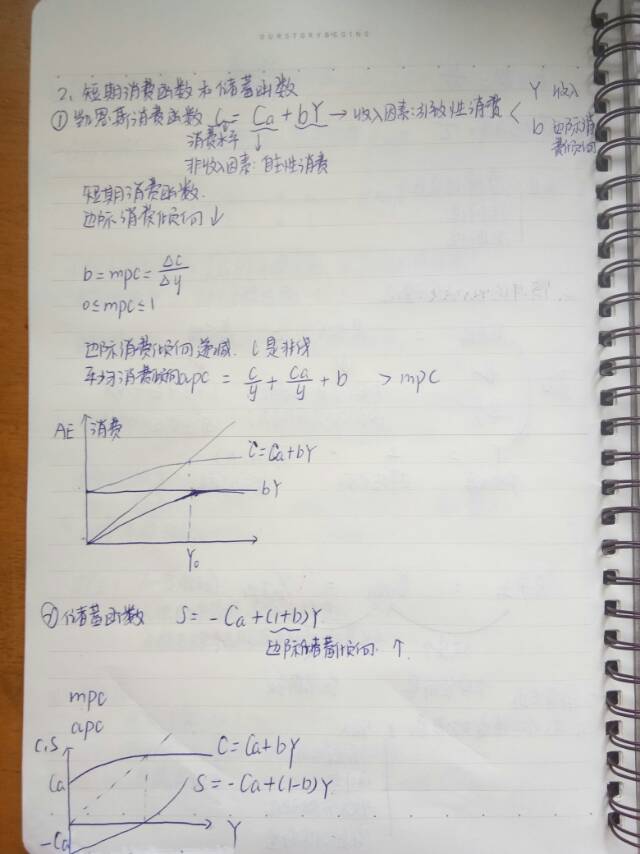 OURSTORYBEGINS
2、短期消费函数和储蓄函数
① 凯恩斯消费函数 C = Ca + bY → 收入因素:引致性消费 < Y 收入
消费水平 ↓ b 边际消费倾向
非收入因素:自主性消费
短期消费函数.
边际消费倾向↓
b = mpc = Δc/Δy
0≤mpc≤1
边际消费倾向递减. C是非线
平均消费倾向apc = c/y + Ca/y + b > mpc
AE 消费
C=Ca+bY
bY
Y₀
② 储蓄函数 S = -Ca+(1+b)Y
边际储蓄倾向. ↑
mpc
apc
C,S
C=Ca+bY
Ca
S=-Ca+(1-b)Y
-Ca
Y